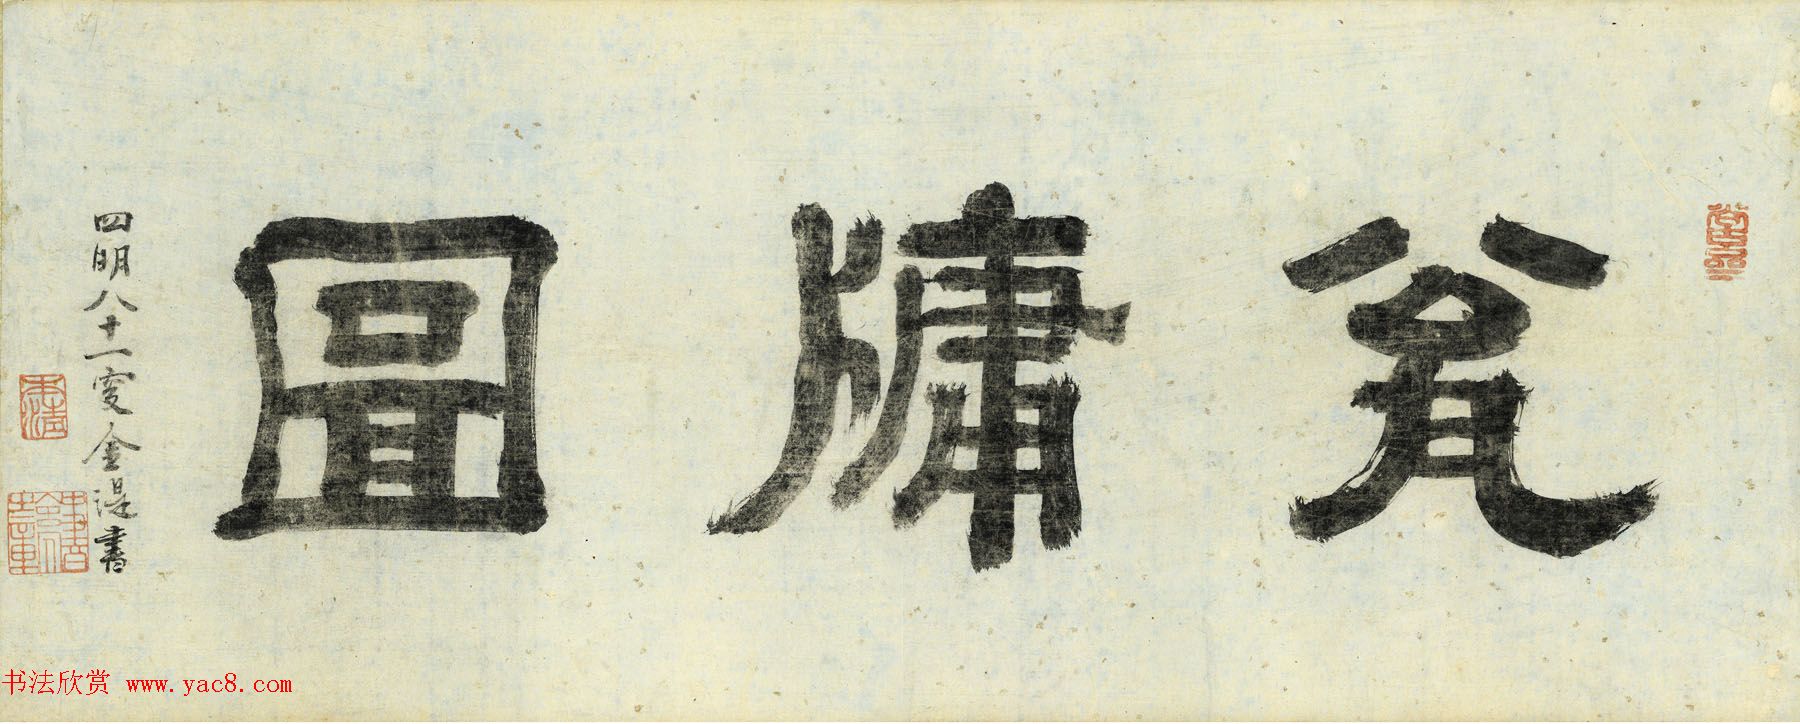 瓮牖圖
四明八十一叟金湜書
书法欣赏 www.yac8.com